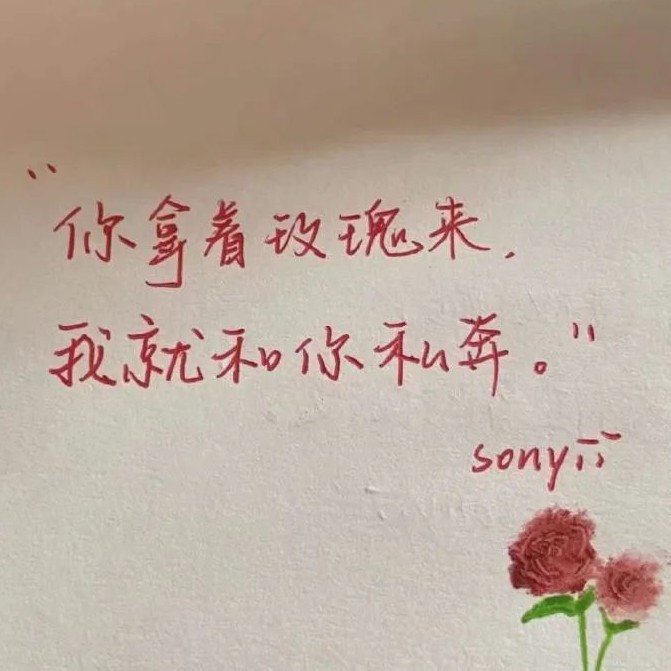 “你拿着玫瑰来,
我就和你私奔。”
sonyii